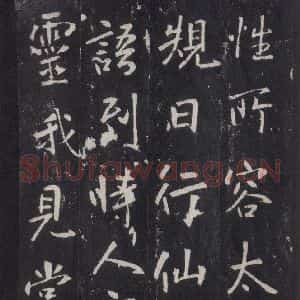 性所容太
規日行仙
語到時人
靈我見当
Shufawang.CN